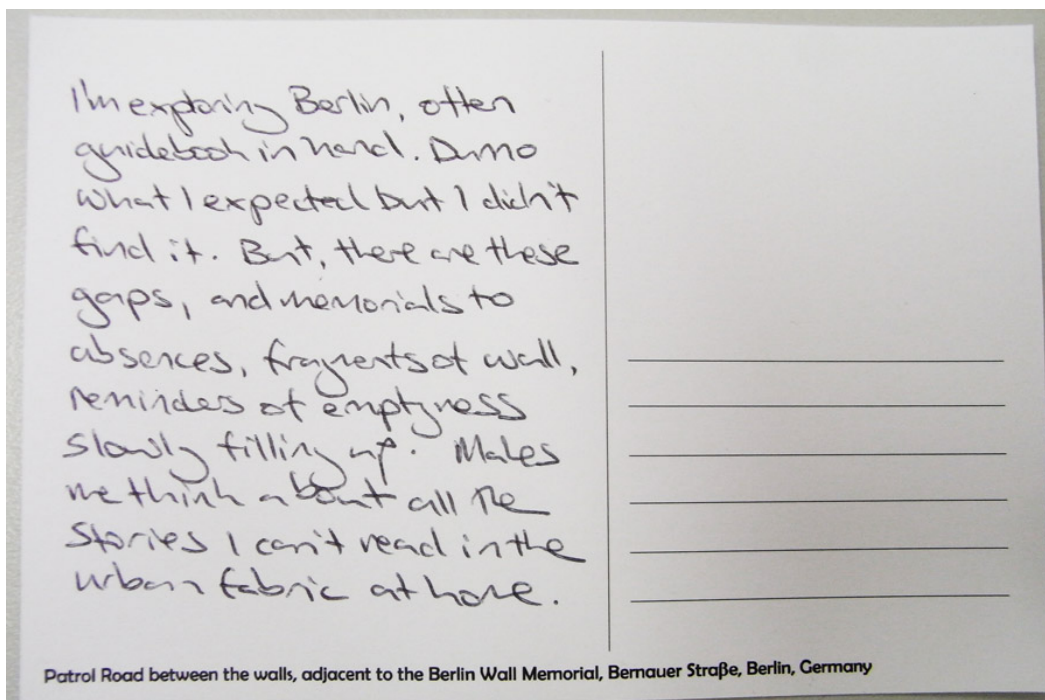 I'm exploring Berlin, often
guidebook in hand. Dunno
what I expected but I didn't
find it. But, there are these
gaps, and memorials to
absences, fragments of wall,
reminders of emptyness
slowly filling up. Makes
me think about all the
stories I can't read in the
urban fabric at home.
Patrol Road between the walls, adjacent to the Berlin Wall Memorial, Bernauer Straße, Berlin, Germany